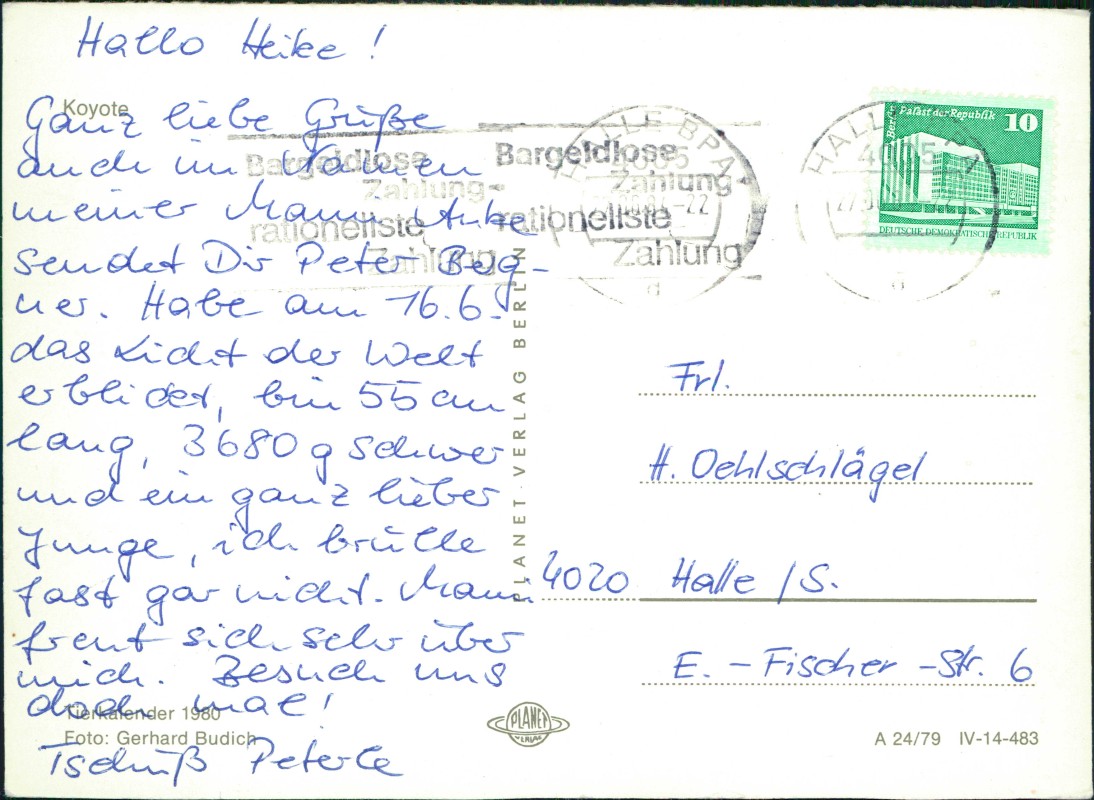 Hallo Heike!
Koyote
Ganz liebe Grüße
auch im Namen
meiner Mami Anke
sendet Dir Peter Beg-
ner. Habe am 16.6.
das Licht der Welt
erblickt, bin 55 cm
lang, 3680 g schwer
und ein ganz lieber
Junge, ich brülle
fast gar nicht. Mami
freut sich sehr über
mich. Besuch uns
doch mal!
Tierkalender 1980
Foto: Gerhard Budich
Tschüß Peterle
PLANET-VERLAG BERLIN
Bargeldlose
Zahlung-
rationellste
Zahlung
Bargeldlose
Zahlung-
rationellste
Zahlung
HALLE BPA
d
HALLE
d
Berlin Palast der Republik 10
DEUTSCHE DEMOKRATISCHE REPUBLIK
Frl.
H. Oehlschlägel
4020 Halle/S.
E.-Fischer-Str. 6
PLANET
VERLAG
A 24/79 IV-14-483